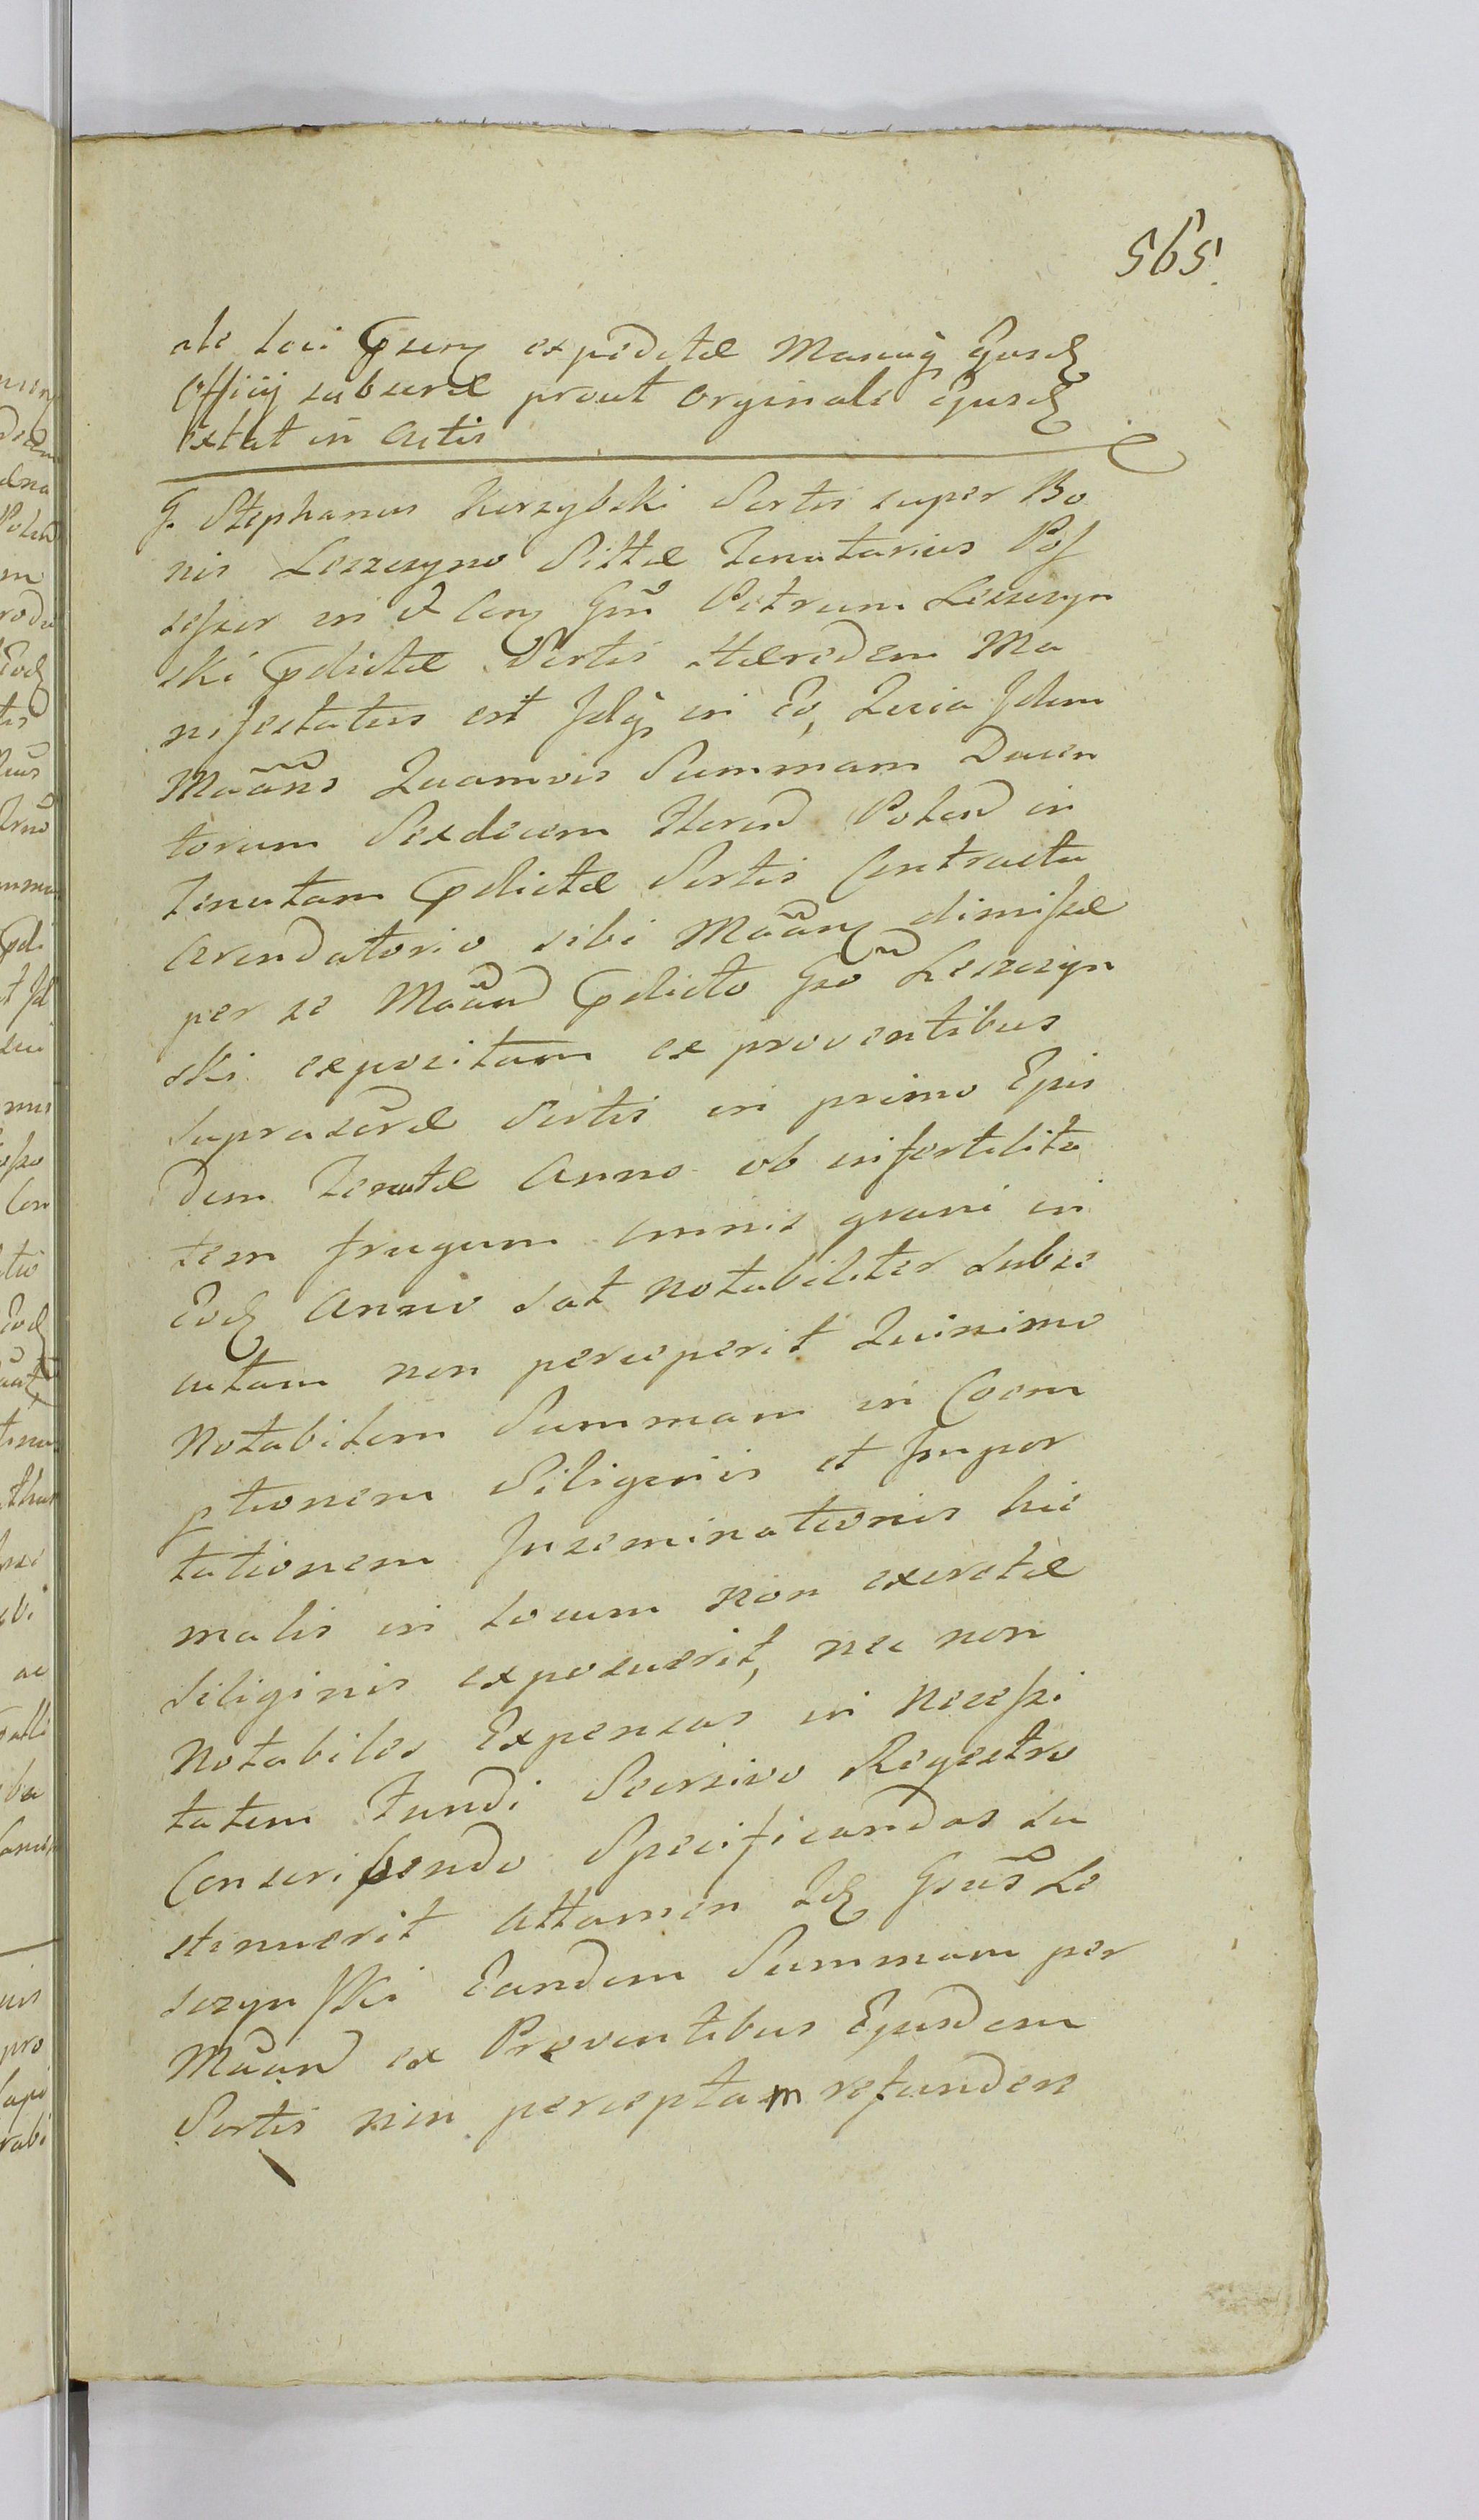 565.
ale loci Psens expeditæ Manuq Ejusd
Officij subscræ prout Orginale Ejusd
Extat in Actis
G. Stephanus Kurzybski Sortis super Bo
nis Leszczyno Sittæ Tenutarius Pos
sessor in et Con Gm̃ Petrum Leszczyn
ski Pdictæ Sortis Hæredem Ma
nifestatus est Idq in Eo, Quia Idem
Mããns Quamvis Summam Ducen
torum Sexdecem floren Polon in
Tenutam Pdictæ Sortis Contractu
Arendatorio sibi Mããn dimissæ
per se Mããn Pdicto Gso Leszczyn
ski expositam ex proventibus
suprascræ Sortis in primo Ejus
dem Tenutæ Anno ob infertilita
tem frugum omnis grani in
Eod Anno sat notabiliter subse
cutam non perceperit Quinimo
Notabilem Summam in Coem
ptionem Siliginis et Impor
tationem Inseminationis hie
malis in locum non excretæ
Siliginis exposuerit, nec non
Notabiles Expensas in Necessi
tatem Fundi Seorsivo Regestro
Conscribendo Specificandas su
stinuerit attamen Id Gsus Le
szczynski Eandem Summam per
Mãan ex Proventibus Ejusdem
Sortis non perceptam refunden